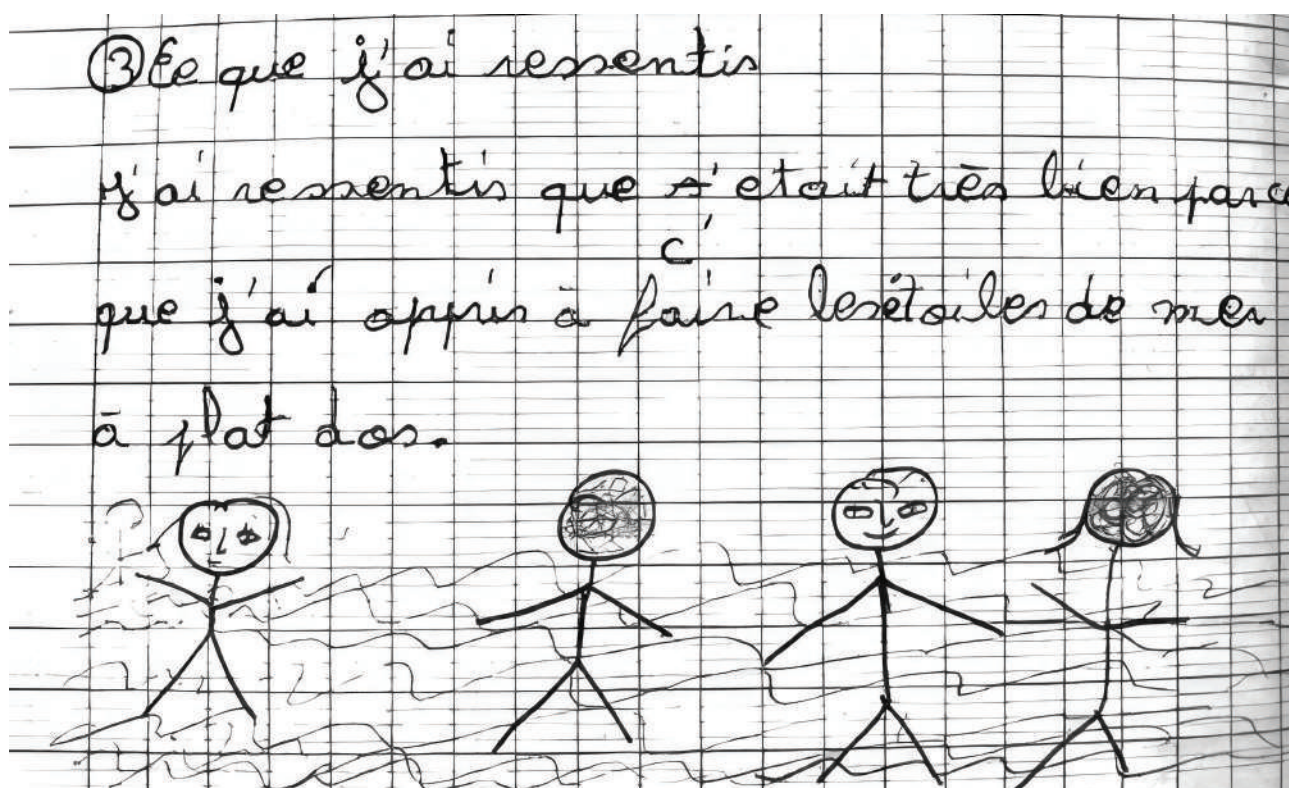 ③ Ce que j'ai ressentis
J'ai ressentis que s'etait très bien parce
c'
que j'ai appris à faire lesétoiles de mer
à plat dos.